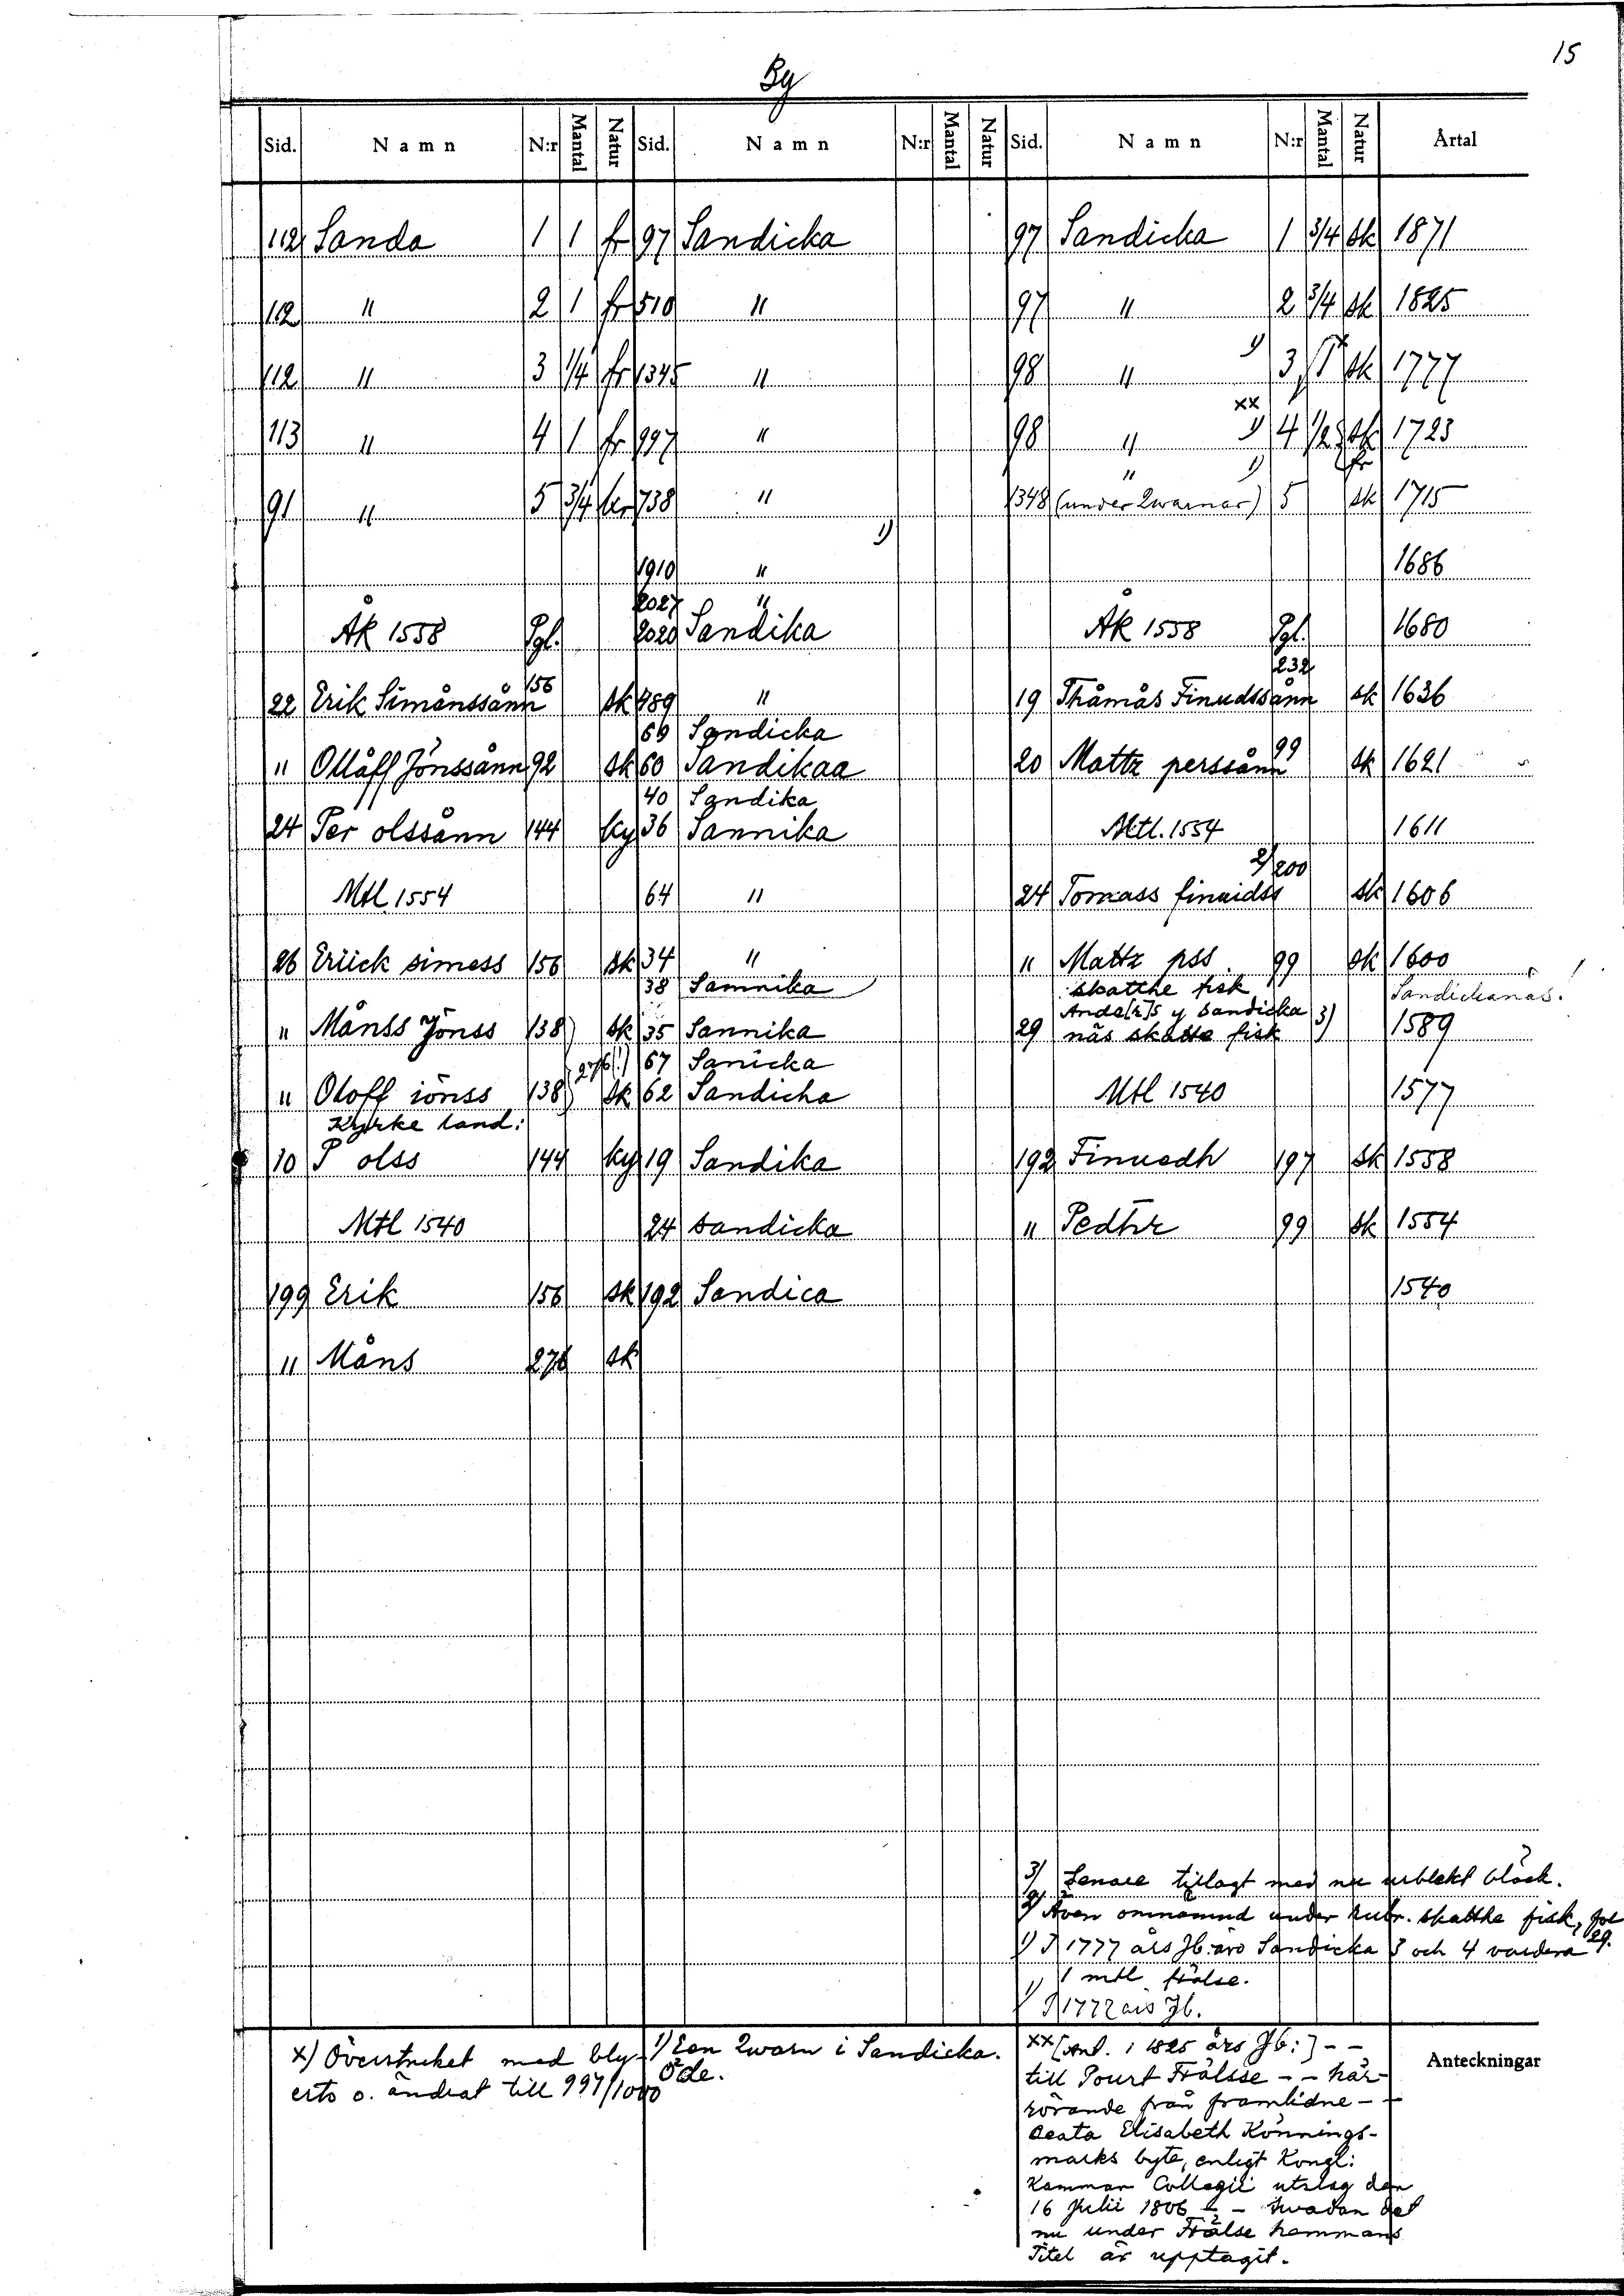 15
By
Sid. Namn N:r Mantal Natur Sid. Namn N:r Mantal Natur Sid. Namn N:r Mantal Natur Årtal
112 Sanda 1 1 fr 97 Sandicka 97 Sandicka 1 3/4 sk 1871
112 " 2 1 fr 510 " 97 " 2 3/4 sk 1825
112 " 3 1/4 fr 1345 " 98 " 1) 3 1 sk 1777
xx
113 " 4 1 fr 997 " 98 " 1) 4 1/2 sk 1723
fr
" 1)
91 " 5 3/4 kr 738 " 1348 (under Qwarnar) 5 sk 1715
1)
1910 " 1686
2027 "
ÅK 1558 Pgl. 2020 Sandika ÅK 1558 Pgl. 1680
156 232
22 Erik Simånssånn sk 789 " 19 Thåmås Finudssånn sk 1636
69 Sandicka
" Ollåff Jönssånn 92 sk 60 Sandikaa 20 Mattz perssånn 99 sk 1621
40 Sandika
24 Per olssånn 144 ky 36 Sannika Mtl. 1554 1611
2/200
Mtl 1554 64 " 24 Tomass finuidss sk 1606
26 Eriick simess 156 sk 34 " " Mattz pss 99 sk 1600
38 Samnika skatthe fisk Sandickanäs!
Ande[r]s y Sandicka 3)
" Månss Jönss 138) sk 35 Sannika 29 näs skatte fisk 1589
276(!) 67 Sanicka
" Oloff iönss 138) sk 62 Sandicha Mtl 1540 1577
Kyrke land:
10 P olss 144 ky 19 Sandika 192 Finuedh 197 sk 1558
Mtl 1540 24 sandicka " Pedhr 99 sk 1554
199 Erik 156 sk 192 Sandica 1540
" Måns 276 sk
3) Senare tillagt med nu urblekt bläck.
2) Även omnämnd under rubr. skatthe fisk, fol 29.
1) I 1777 års Jb. äro Sandicka 3 och 4 vardera
1 mtl frälse.
1) I 1772 års Jb.
x) Överstruket med bly-
erts o. ändrat till 997/1000
1) Een Qwarn i Sandicka.
Öde.
xx [Ant. i 1825 års Jb:] - -
till Pourt Frälsse - - här-
rörande från framlidne - -
Beata Elisabeth Könnings-
marks byte, enligt Kongl:
Kammar Collegii utslag den
16 Julii 1806 - - hwadan det
nu under Frälse hemmans
Titel är upptagit.
Anteckningar